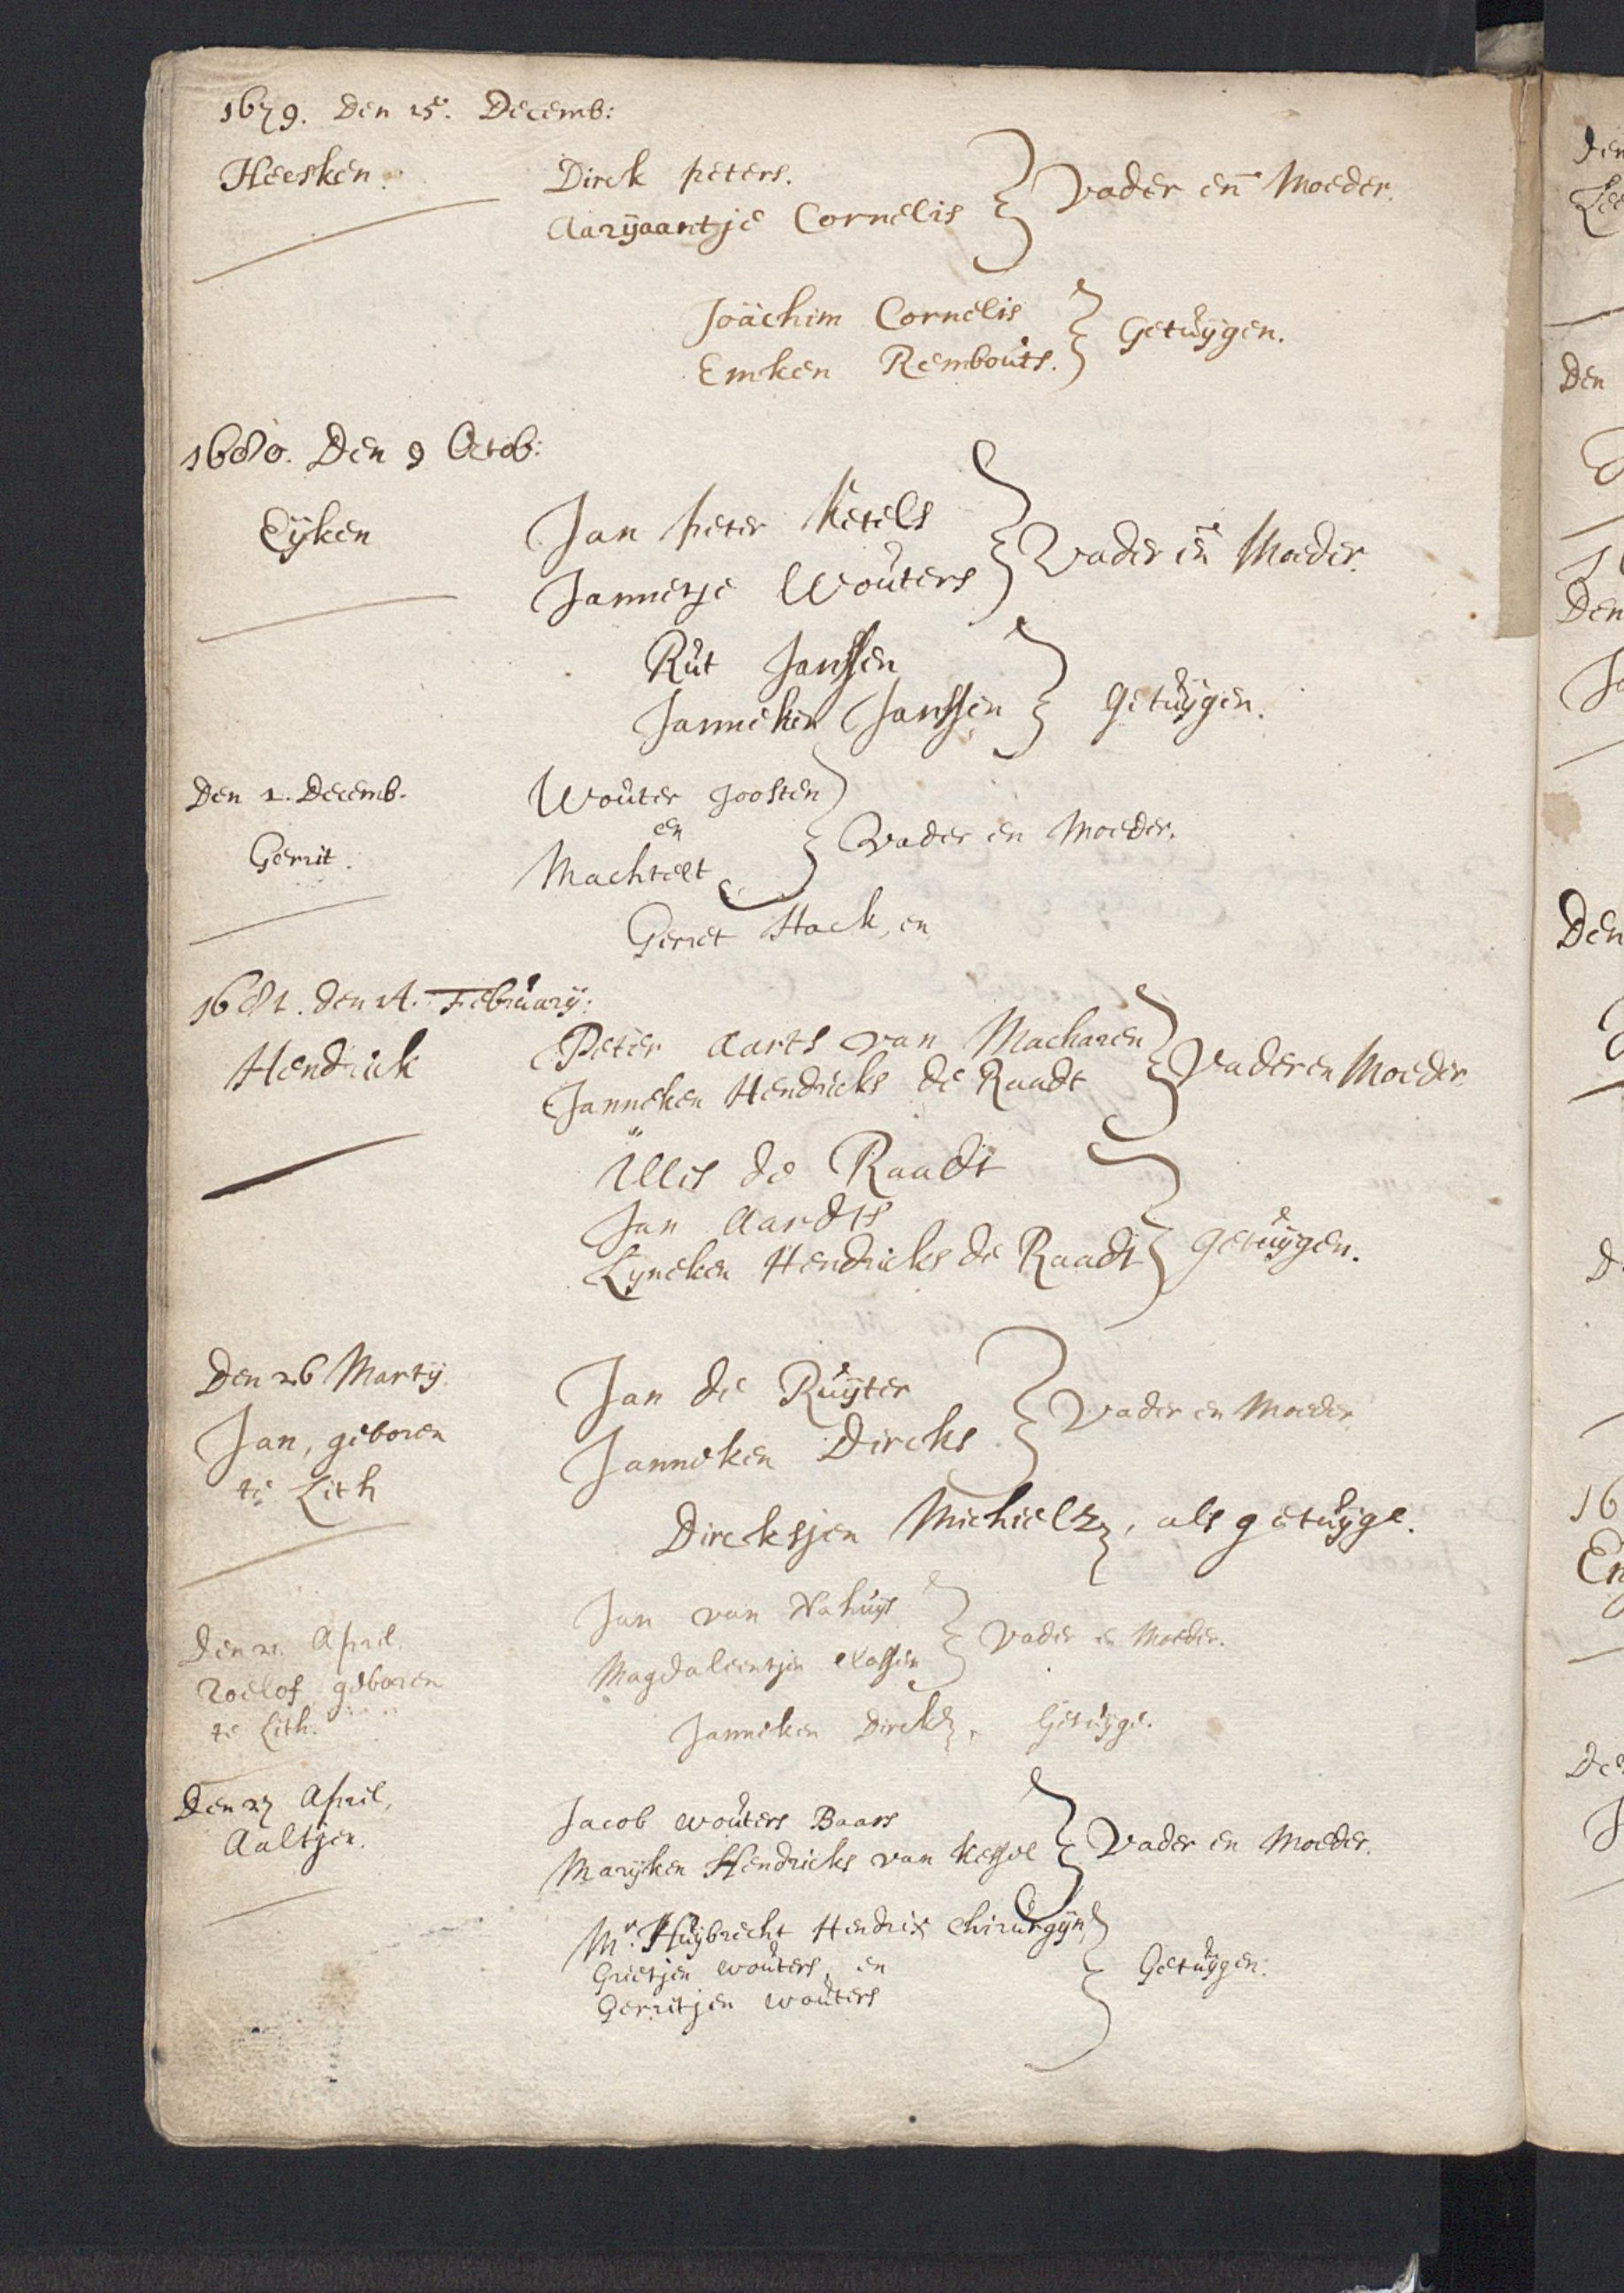 1679. Den 25. Decemb:
Heesken. Dirck peters.
Aarijaantje Cornelis } Vader en Moeder.
Joächim Cornelis
Emken Rembouts. } Getuijgen.
1680. Den 9 Octob:
Eijken Jan peter Ketels
Jannetje Wouters } Vader en Moeder.
Rut Janssen
Janneken Janssen } Getuijgen.
Den 1. Decemb. Wouter Joosten
en
Gerrit. Machtelt } Vader en Moeder.
Gerret Hack, en
1681. den 14. February:
Hendrick Peter Aarts van Macharen
Janneken Hendricks de Raadt } Vader en Moeder
Willis de Raadt
Jan Aardts
Lyneken Hendricks de Raadt } getuijgen.
Den 26 Martij. Jan de Ruijter
Jan, geboren Janneken Dircks } Vader en Moeder
te Lith
Dircksjen Michielz, als getuijge.
Jan van Nahuijs
Den 21. April. Magdaleentjen Classen } Vader en Moeder.
Roelof geboren
te Lith. Janneken Dirckz, Getuijge.
Den 27 April, Jacob Wouters Baars
Aaltjen. Marijken Hendricks van Kessel } Vader en Moeder.
Mr. Huijbrecht Hendrix Chirurgijn,
Grietjen Wouters, en
Gerritjen Wouters } Getuijgen.